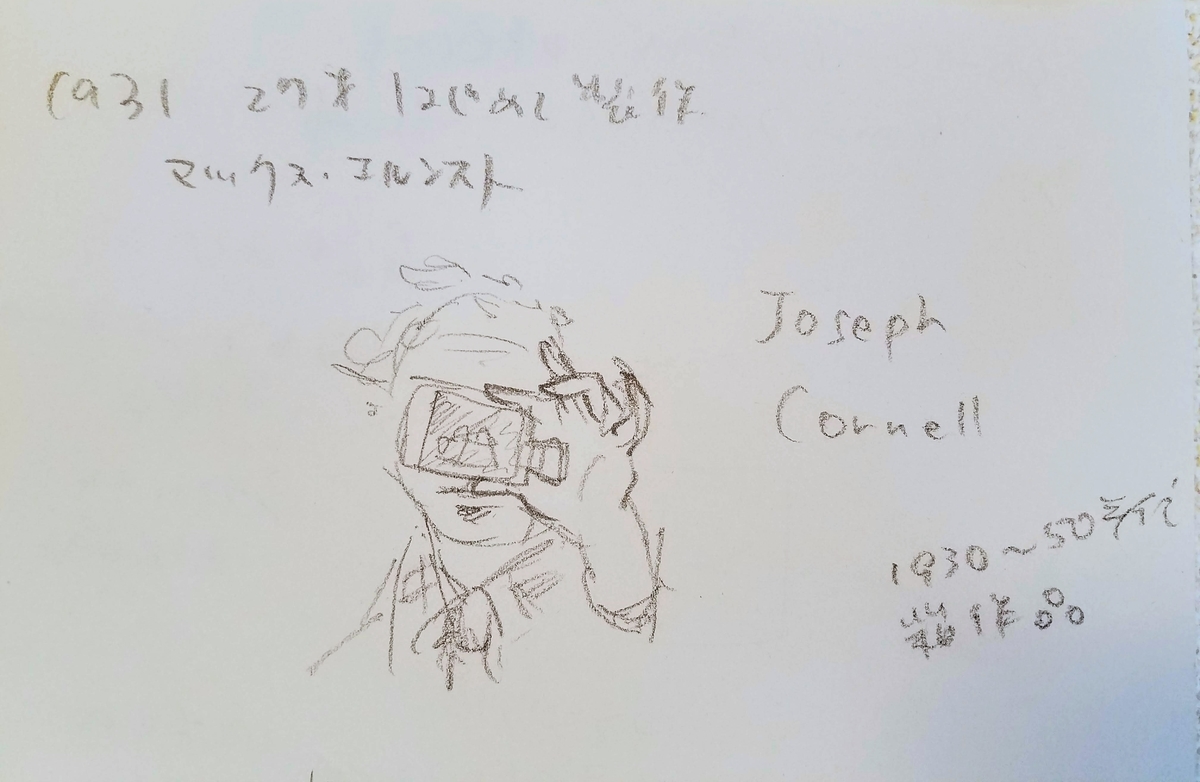 1931 27才 はじめて
マックス・エルンスト
Joseph
Cornell
1930~50年代